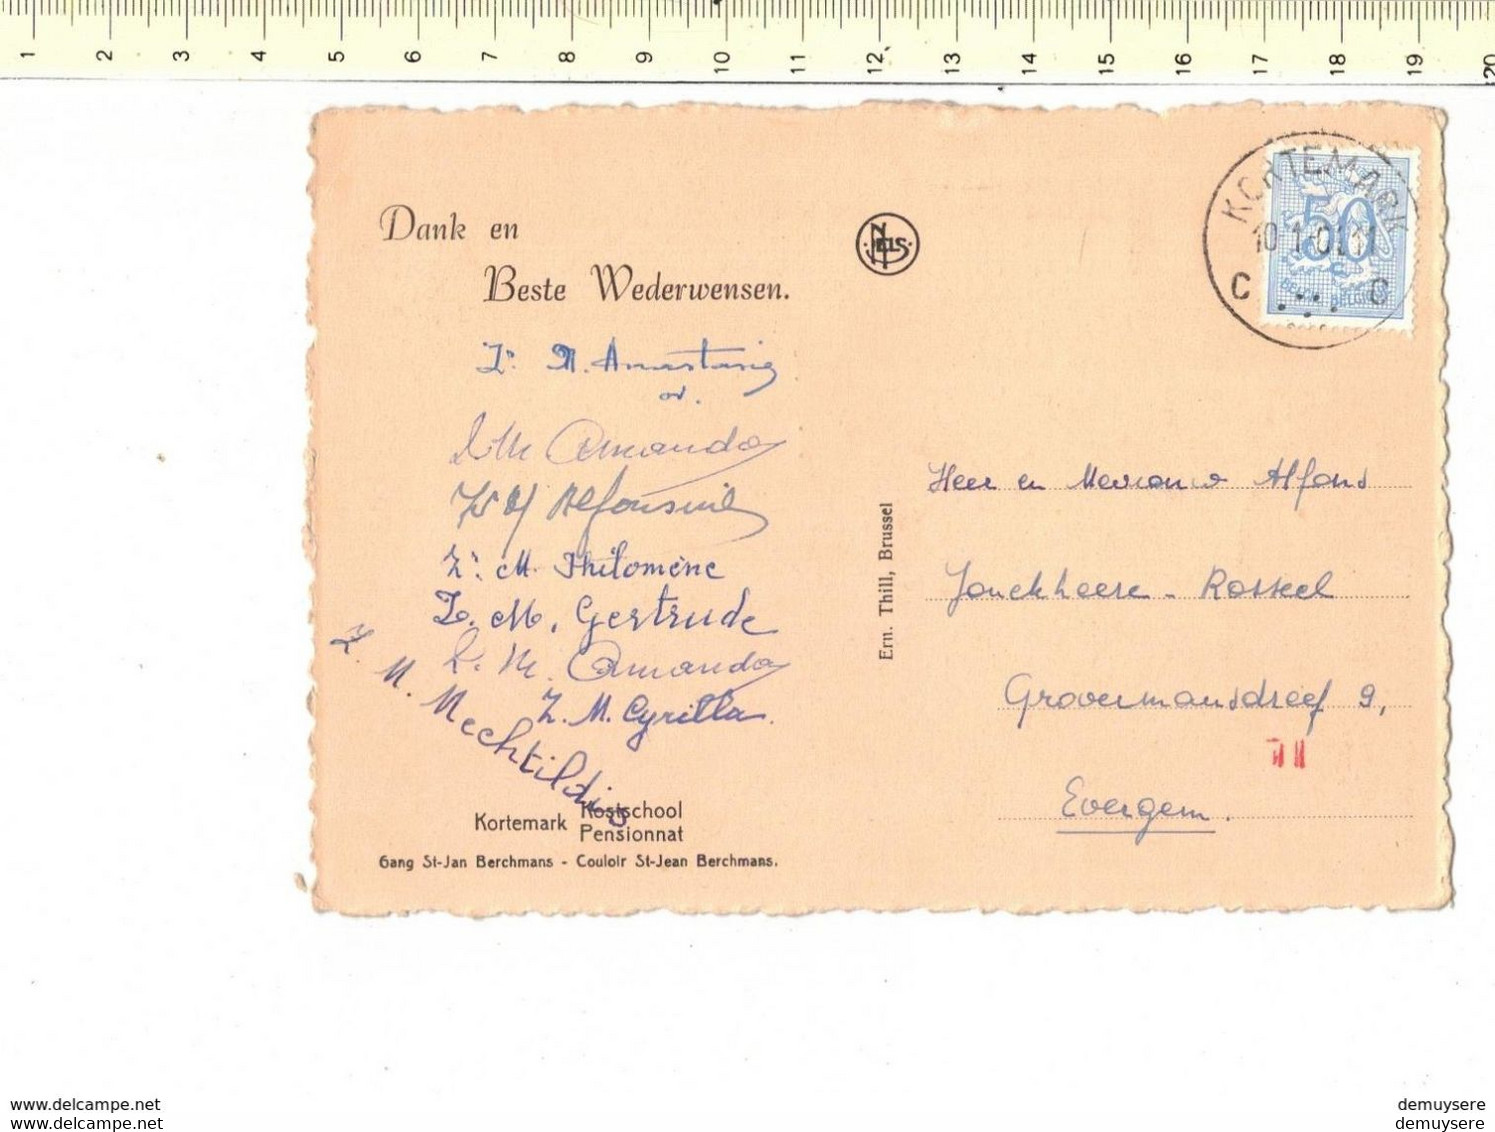 1 2 3 4 5 6 7 8 9 10 11 12 13 14 15 16 17 18 19 20
Dank en
Beste Wederwensen.
NELS
KORTEMARK
10-1-01.11
C C
50
BELGIE BELGIQUE
Z. M. Anastasie
Z M Amanda
Zr M Alfonsine
Zr. M. Philomène
Z. M. Gertrude
Z. M. Amanda
Z. M. Cyrilla.
Z. M. Mechtildis
Kortemark Kostschool
Pensionnat
Gang St-Jan Berchmans - Couloir St-Jean Berchmans.
Ern. Thill, Brussel
Heer en Mevrouw Alfons
Jonckheere - Rosseel
Grovermansdreef 9,
Evergem.
www.delcampe.net
demuysere
www.delcampe.net
demuysere